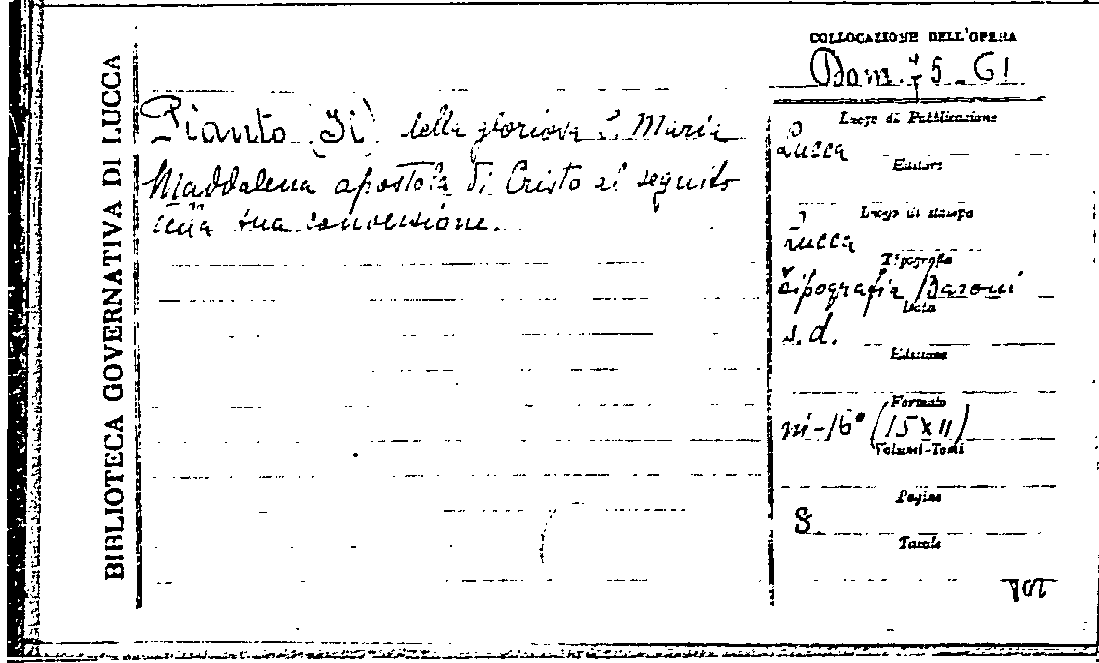 BIBLIOTECA GOVERNATIVA DI LUCCA
Pianto (Il) della gloriosa S. Maria
Maddalena apostola di Cristo al seguito
della sua conversione.
COLLOCAZIONE DELL'OPERA
Bam. 75-61
Luogo di Pubblicazione
Lucca
Editore
Luogo di stampa
Lucca
Tipografia
Tipografia Baroni
Data
s.d.
Edizione
Formato
in-16° (15x11)
Volumi-Tomi
Pagine
8.
Tavole